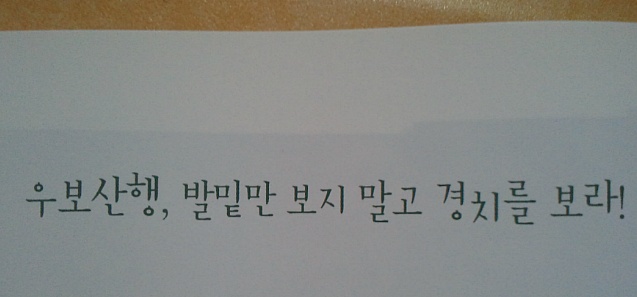 우보산행, 발밑만 보지 말고 경치를 보라!